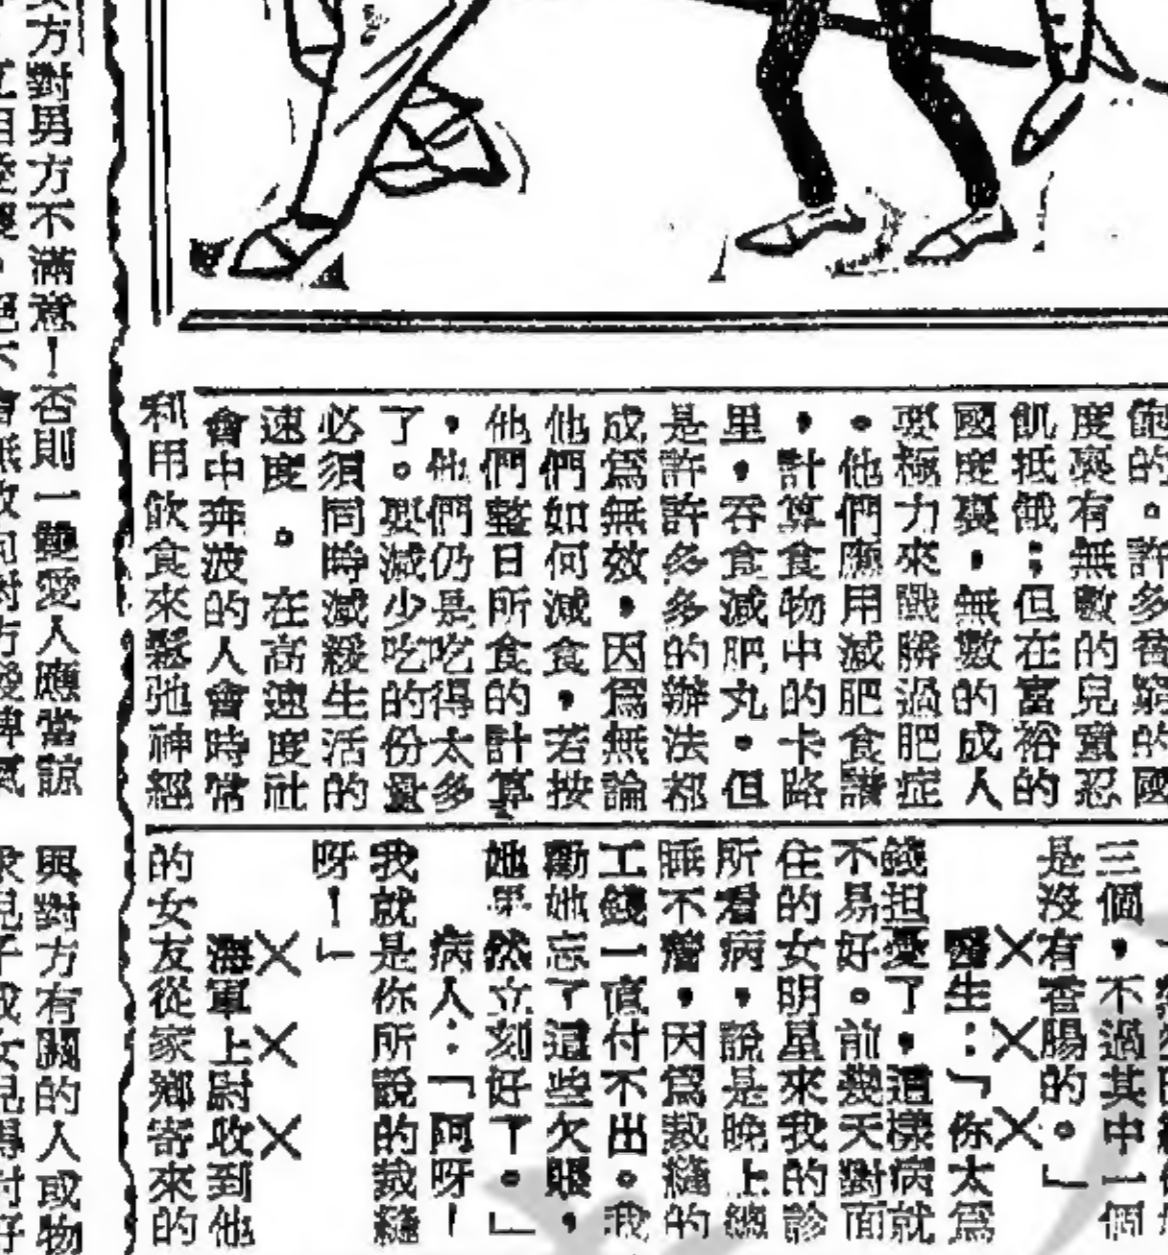 飽的。許多貧窮的國
度裏有無數的兒童忍
飢抵餓；但在富裕的
國度裏，無數的成人
要極力來戰勝過肥症
。他們應用減肥食譜
，計算食物中的卡路
里，吞食減肥丸。但
是許許多多的辦法都
成爲無效，因爲無論
他們如何減食，若按
他們整日所食的計算
，他們仍是吃得太多
了。要減少吃的份量
必須同時減緩生活的
速度。在高速度社
會中奔波的人會時常
利用飲食來鬆弛神經
三個，不過其中一個
是沒有香腸的。」
×××
醫生：「你太爲
錢担憂了，這樣病就
不易好。前幾天對面
住的女明星來我的診
所看病，說是晚上總
睡不着，因爲裁縫的
工錢一直付不出。我
勸她忘了這些欠賬，
她果然立刻好了。」
病人：「阿呀！
我就是你所說的裁縫
呀！」
×××
海軍上尉收到他
的女友從家鄉寄來的
方對男方不滿意！否則一雙愛人應當諒
與對方有關的人或物